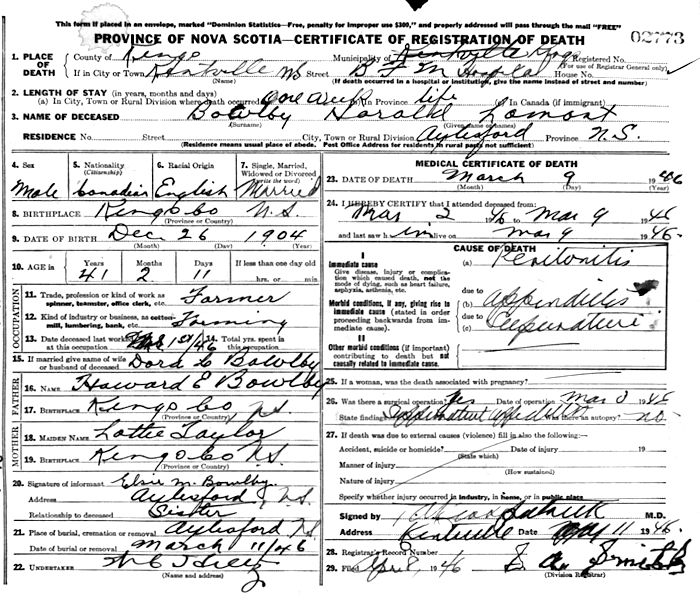 This form if placed in an envelope, marked "Dominion Statistics—Free, penalty for improper use $300," and properly addressed will pass through the mail "FREE"
PROVINCE OF NOVA SCOTIA—CERTIFICATE OF REGISTRATION OF DEATH
02773
1. PLACE OF DEATH
County of Kings Municipality of Registered No.
(For use of Registrar General only)
If in City or Town Kentville NS Street House No.
(Name) (If death occurred in a hospital or institution, give the name instead of street and number)
2. LENGTH OF STAY (in years, months and days)
(a) In City, Town or Rural Division where death occurred one week In Province life In Canada (if immigrant)
3. NAME OF DECEASED Bowlby Harold Lamont
(Surname) (Given name or names)
RESIDENCE No. Street City, Town or Rural Division Aylesford Province N.S.
(Residence means usual place of abode. Post Office Address for residents in rural parts not sufficient)
4. Sex Male
5. Nationality (Citizenship) Canadian
6. Racial Origin English
7. Single, Married, Widowed or Divorced (write the word) Married
8. BIRTHPLACE Kings Co N.S.
(Province or Country)
9. DATE OF BIRTH Dec 26 1904
(Month) (Day) (Year)
10. AGE in Years 41 Months 2 Days 11 If less than one day old hrs. or min.
OCCUPATION
11. Trade, profession or kind of work as spinner, teamster, office clerk, etc. Farmer
12. Kind of industry or business, as cotton-mill, lumbering, bank, etc. Farming
13. Date deceased last worked at this occupation 1st/46 14. Total yrs. spent in this occupation
15. If married give name of wife or husband of deceased Dora L Bowlby
FATHER
16. NAME Howard E Bowlby
17. BIRTHPLACE Kings Co N.S.
(Province or Country)
MOTHER
18. MAIDEN NAME Lottie Taylor
19. BIRTHPLACE Kings Co N.S.
(Province or Country)
20. Signature of informant Elsie M. Bowlby
Address Aylesford N.S.
Relationship to deceased Sister
21. Place of burial, cremation or removal Aylesford N.S.
Date of burial or removal March 11/46
22. UNDERTAKER
(Name and address)
MEDICAL CERTIFICATE OF DEATH
23. DATE OF DEATH March 9 1946
(Month) (Day) (Year)
24. I HEREBY CERTIFY that I attended deceased from:
Mar 2 46 to Mar 9 1946
and last saw h im alive on Mar 9 1946.
CAUSE OF DEATH
I
Immediate cause
Give disease, injury or complication which caused death, not the mode of dying, such as heart failure, asphyxia, asthenia, etc.
(a) Peritonitis
due to
Morbid conditions, if any, giving rise to immediate cause (stated in order proceeding backwards from immediate cause)
(b) appendicitis
due to
(c) Suppurative
II
Other morbid conditions (if important) contributing to death but not causally related to immediate cause.
25. If a woman, was the death associated with pregnancy?
26. Was there a surgical operation? Yes Date of operation Mar 3 1946
State findings Suppurative appendicitis Was there an autopsy? no
27. If death was due to external causes (violence) fill in also the following:—
Accident, suicide or homicide? Date of injury 19
(State which)
Manner of injury
(How sustained)
Nature of injury
Specify whether injury occurred in industry, in home, or in public place
Signed by M.D.
Address Kentville 11 1946.
28. Registrar's Record Number
29. Filed Apr 8, 1946 Smith
(Division Registrar)